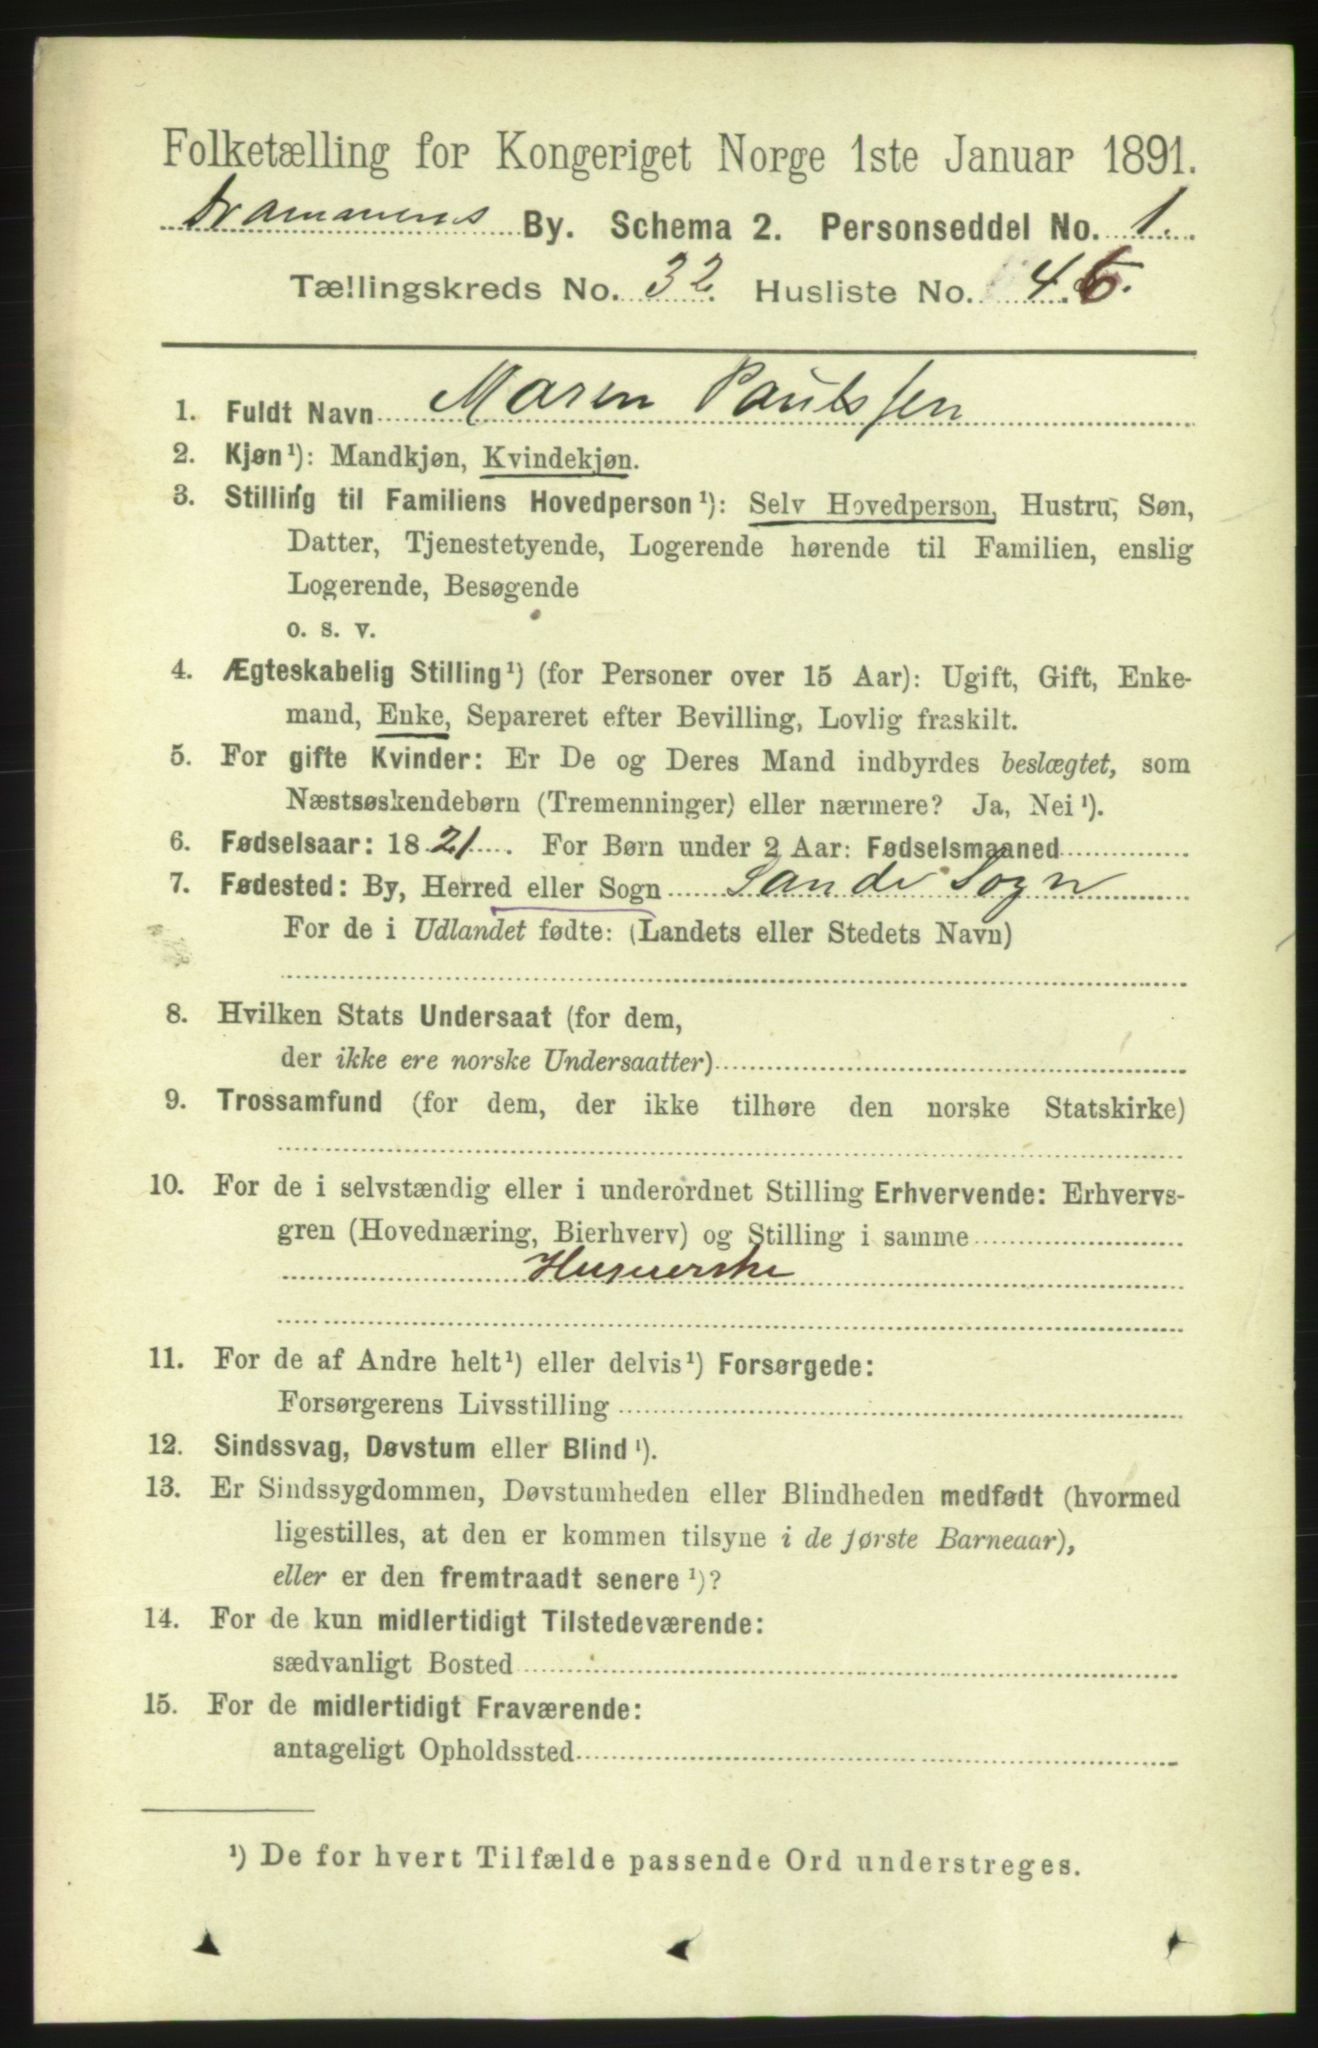 Folketælling for Kongeriget Norge 1ste Januar 1891.
Drammens By. Schema 2. Personseddel No. 1.
Tællingskreds No. 32. Husliste No. 4
1. Fuldt Navn Maren Paulssen
2. Kjøn¹): Mandkjøn, Kvindekjøn.
3. Stilling til Familiens Hovedperson¹): Selv Hovedperson, Hustru, Søn,
Datter, Tjenestetyende, Logerende hørende til Familien, enslig
Logerende, Besøgende
o. s. v.
4. Ægteskabelig Stilling¹) (for Personer over 15 Aar): Ugift, Gift, Enke-
mand, Enke, Separeret efter Bevilling, Lovlig fraskilt.
5. For gifte Kvinder: Er De og Deres Mand indbyrdes beslægtet, som
Næstsøskendebørn (Tremenninger) eller nærmere? Ja, Nei¹).
6. Fødselsaar: 1821. For Børn under 2 Aar: Fødselsmaaned
7. Fødested: By, Herred eller Sogn Sande Sogn
For de i Udlandet fødte: (Landets eller Stedets Navn)
8. Hvilken Stats Undersaat (for dem,
der ikke ere norske Undersaatter)
9. Trossamfund (for dem, der ikke tilhøre den norske Statskirke)
10. For de i selvstændig eller i underordnet Stilling Erhvervende: Erhvervs-
gren (Hovednæring, Bierhverv) og Stilling i samme
Huseierske
11. For de af Andre helt¹) eller delvis¹) Forsørgede:
Forsørgerens Livsstilling
12. Sindssvag, Døvstum eller Blind¹).
13. Er Sindssygdommen, Døvstumheden eller Blindheden medfødt (hvormed
ligestilles, at den er kommen tilsyne i de første Barneaar),
eller er den fremtraadt senere¹)?
14. For de kun midlertidigt Tilstedeværende:
sædvanligt Bosted
15. For de midlertidigt Fraværende:
antageligt Opholdssted
¹) De for hvert Tilfælde passende Ord understreges.